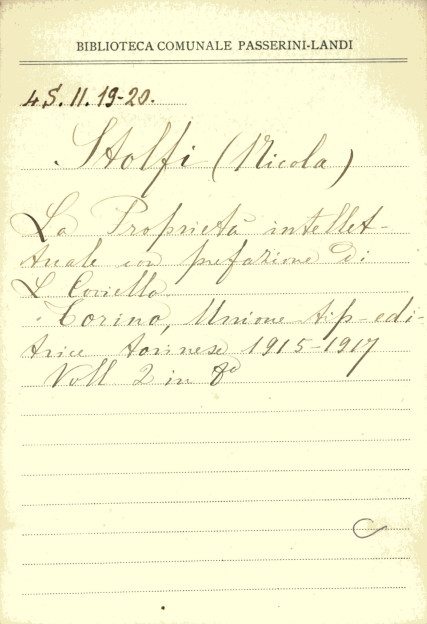 BIBLIOTECA COMUNALE PASSERINI-LANDI
4S. II. 19-20.
Stolfi (Nicola)
La Proprietà intellet-
tuale con prefazione di
L Coviello
Torino, Unione tip-edi-
trice torinese 1915-1917
Voll 2 in 8°